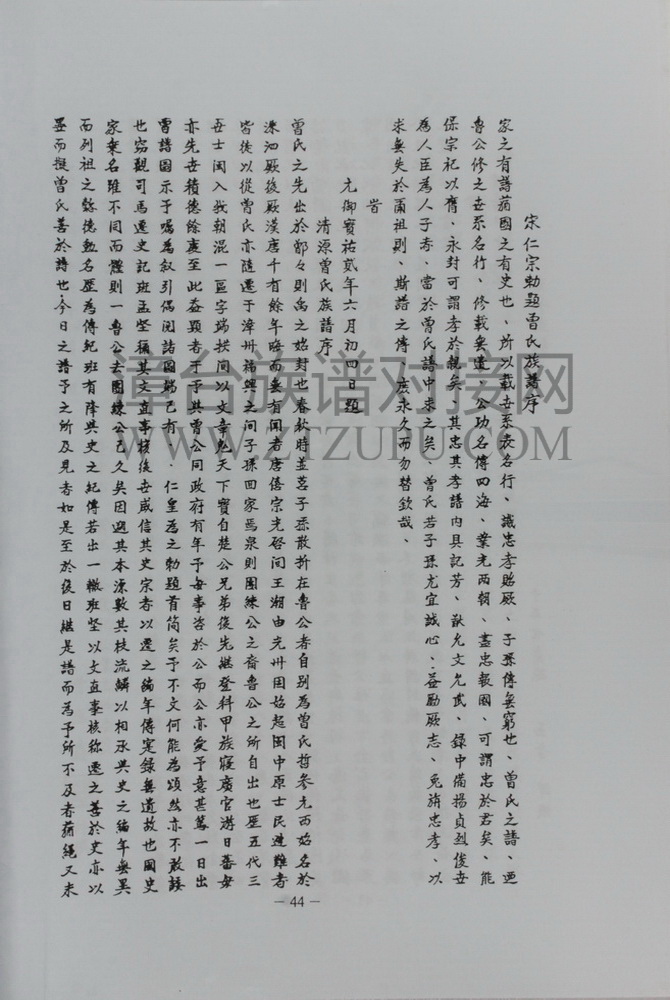 宋仁宗勅題曾氏族譜序
家之有譜猶國之有史也、所以載世系表名行、誠忠孝貽厥、子孫傳無窮也、曾氏之譜、迺
魯公修之世系名行、修載無遺、公功名傳四海、業光兩朝、盡忠報國、可謂忠於君矣、能
保宗祀以膺、永封可謂孝於親矣、其忠其孝譜內具記芳、猷允文允武、錄中備揚貞烈後世
為人臣為人子者、當於曾氏譜中求之矣、曾氏若子孫尤宜誠心、益勵厥志、免旃忠孝、以
求無失於爾祖則、斯譜之傳、庶永久而勿替欽哉、
旹
元御寶祐貳年六月初四日題
清源曾氏族譜序
曾氏之先出於鄫々則禹之始封也春秋時並莒子孫散折在魯公者自別為曾氏哲參元西始名於
洙泗厥後厥漢唐千有餘年晦而無有聞者唐僖宗光啓間王潮由光州固始起閩中原士民避難者
皆徙以從曾氏亦隨遷于漳州福興之間子孫回家焉泉則團練公之裔魯公之所自出也歷五代三
吾士閩入我朝混一區宇端拱間以文章魁天下實自楚公兄弟後先繼登科甲族寖廣官游日蕃毋
亦先世積德餘慶至此益顯者乎予與曾公同政府有年予每事咨於公而公亦愛予意甚篤一日出
曾譜圖示于囑為叙引偶閱諸圖端已有．．仁皇為之勅題首簡矣予不文何能為頌然亦不敢諉
也竊觀司馬遷史記班孟堅稱其文直事核後世咸信其史宗者以遷之編年傳寔錄無遺故也國史
家乘名雖不同而體則一魯公去團練公已久矣因遡其本源數其枝流鱗以相承與史之編年無異
而列祖之懿德勳名歷為傳紀班有降與史之紀傳若出一轍班堅以文直事核称遷之善於史亦以
墨而擬曾氏善於譜也今日之譜予之所及見者如是至於後日繼是譜而為予所不及者猶繩又未
- 44 -
漳台族谱对接网
WWW.ZTZUPU.COM